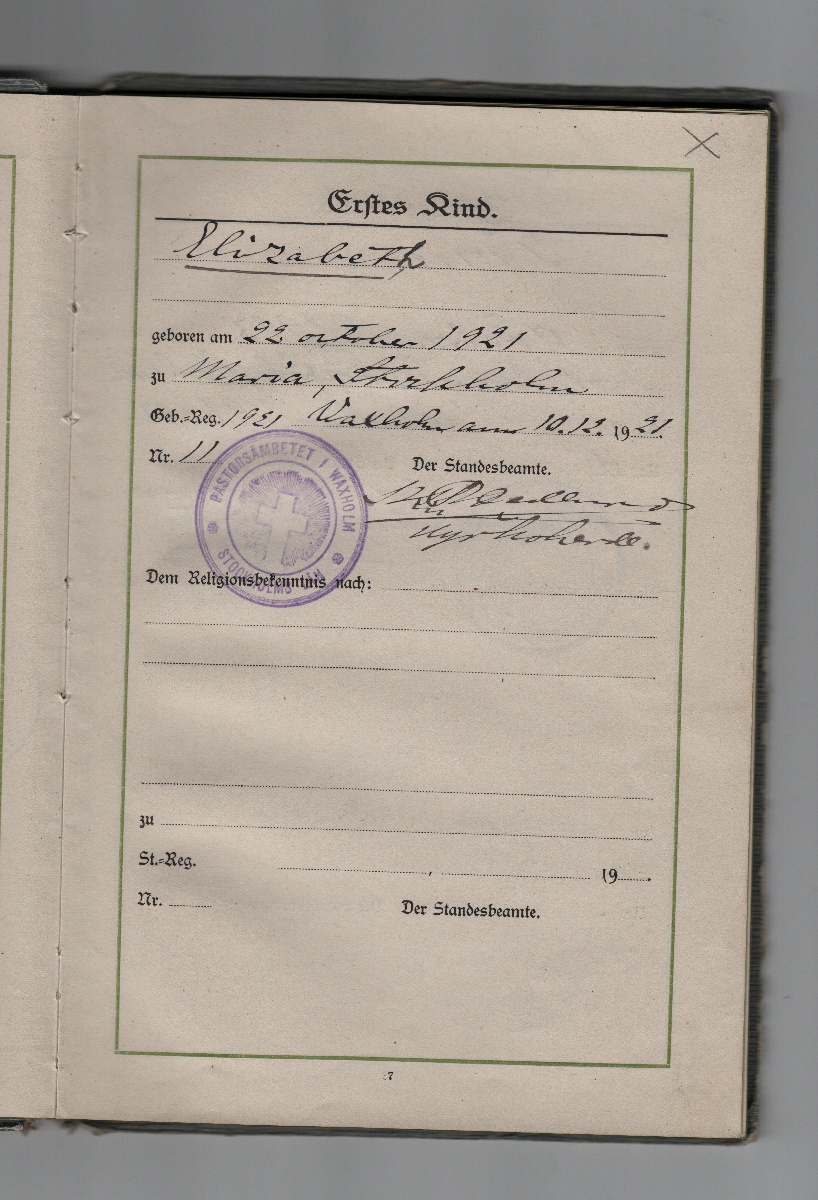 Erstes Kind.
Elizabeth
geboren am 22 october 1921
zu Maria, Stockholm
Geb.-Reg. 1921 Vaxholm am 10.12. 1921.
Nr. 11
Der Standesbeamte.
Kyrkoherde.
PASTORSÄMBETET I WAXHOLM
STOCKHOLMS LÄN
Dem Religionsbekenntnis nach:
zu
St.-Reg. , 19 .
Nr.
Der Standesbeamte.
7